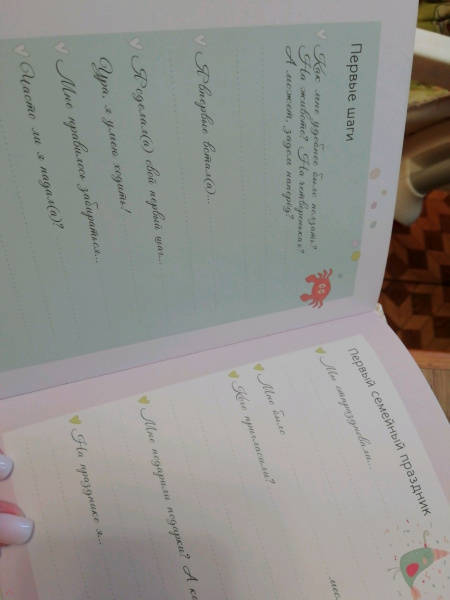 Первые шаги
Как мне удобнее было ползать?
На животе? На четвереньках?
А может, задом наперёд?
Я впервые встал(а)...
Я сделал(а) свой первый шаг...
Ура, я умею ходить!
Мне нравилось забираться...
Часто ли я падал(а)?
Первый семейный праздник
Мы отпраздновали...
Мне было
мес
Кого пригласили?
Мне подарили подарки? А ка
На празднике я...